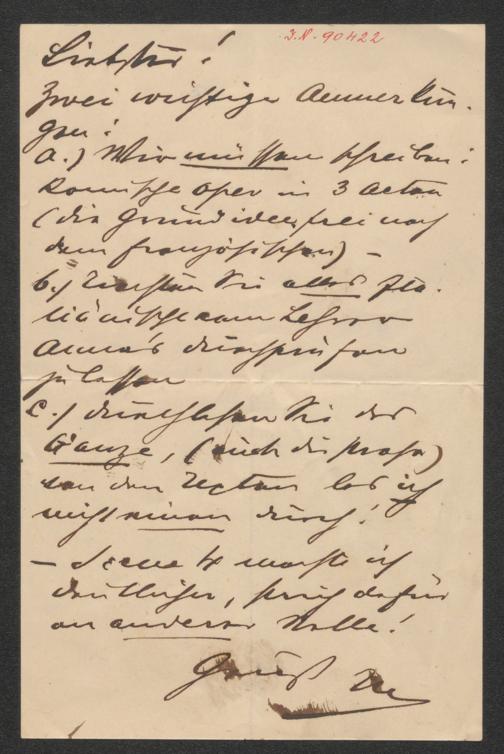 I.N. 90422
Liebster!
Zwei wichtige Anmerkun-
gen:
a.) Wir müssen schreiben:
Komische Oper in 3 Acten
(die Grundidee frei nach
dem französischen) –
b.) Sie alles Ita-
liänische vom Lehrer
Anna's durchprüfen
zu lassen
c.) durchlesen Sie das
Ganze, (auch die Prosa)
von den Texten las ich
nicht einen durch!
– Scene 4 machte ich
deutlicher, strich dafür
an anderer Stelle!
Gruß